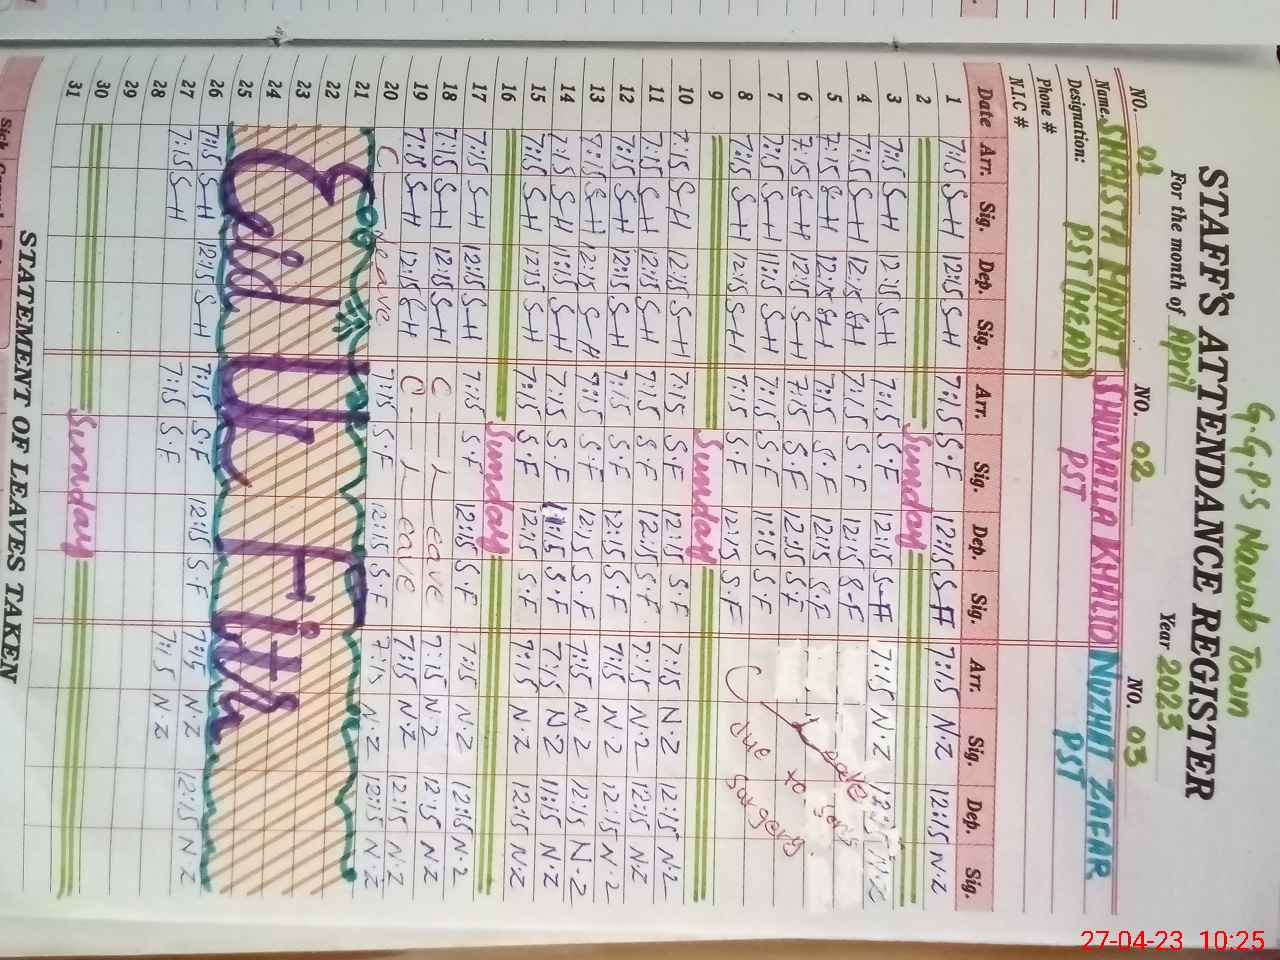 G.G.P.S Nawab Town
STAFF'S ATTENDANCE REGISTER
For the month of April Year 2023
NO. 01 NO. 02 NO. 03
Name. SHAISTA HAYAT SHUMAILA KHALID NUZHAT ZAFAR
Designation: PST (HEAD) PST PST
Phone #
N.I.C #
Date Arr. Sig. Dep. Sig. Arr. Sig. Dep. Sig. Arr. Sig. Dep. Sig.
1 7:15 S-H 12:15 S-H 7:15 S.F 12:15 S.F 7:15 N.Z 12:15 N.Z
2 Sunday
3 7:15 S-H 12:15 S-H 7:15 S.F 12:15 S.F 7:15 N.Z 12:15 N.Z
4 7:15 S-H 12:15 S-H 7:15 S.F 12:15 S.F
5 7:15 S-H 12:15 S-H 7:15 S.F 12:15 S.F
6 7:15 S-H 12:15 S-H 7:15 S.F 12:15 S.F
7 7:15 S-H 11:15 S-H 7:15 S.F 11:15 S.F
8 7:15 S-H 12:15 S-H 7:15 S.F 12:15 S.F
due to
surgery.
9 Sunday
10 7:15 S-H 12:15 S-H 7:15 S.F 12:15 S.F 7:15 N.Z 12:15 N.Z
11 7:15 S-H 12:15 S-H 7:15 S.F 12:15 S.F 7:15 N.Z 12:15 N.Z
12 7:15 S-H 12:15 S-H 7:15 S.F 12:15 S.F 7:15 N.Z 12:15 N.Z
13 7:15 S-H 12:15 S-H 7:15 S.F 12:15 S.F 7:15 N.Z 12:15 N.Z
14 7:15 S-H 11:15 S-H 7:15 S.F 11:15 S.F 7:15 N.Z 11:15 N.Z
15 7:15 S-H 12:15 S-H 7:15 S.F 12:15 S.F 7:15 N.Z 12:15 N.Z
16 Sunday
17 7:15 S-H 12:15 S-H 7:15 S.F 12:15 S.F 7:15 N.Z 12:15 N.Z
18 7:15 S-H 12:15 S-H C-Leave 7:15 N.Z 12:15 N.Z
19 7:15 S-H 12:15 S-H C-Leave 7:15 N.Z 12:15 N.Z
20 C-Leave 7:15 S.F 12:15 S.F 7:15 N.Z 12:15 N.Z
21
22
23 Eid Ul Fitr
24
25
26 7:15 S-H 12:15 S-H 7:15 S.F 12:15 S.F 7:15 N.Z 12:15 N.Z
27 7:15 S-H 7:15 S.F 7:15 N.Z
28
29
30 Sunday
31
STATEMENT OF LEAVES TAKEN
Sick
27-04-23 10:25